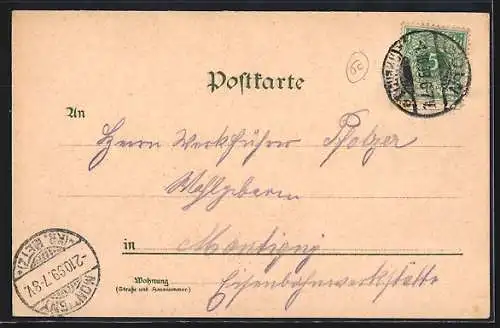 Postkarte
An
Herrn Werkführer Bolzer
Wohlgeborn
in Montigny
Wohnung
(Straße und Hausnummer)
Eisenbahnwerkstätte
5
MONTIGNY
(KR. METZ)
2.10.99. 7-8V.